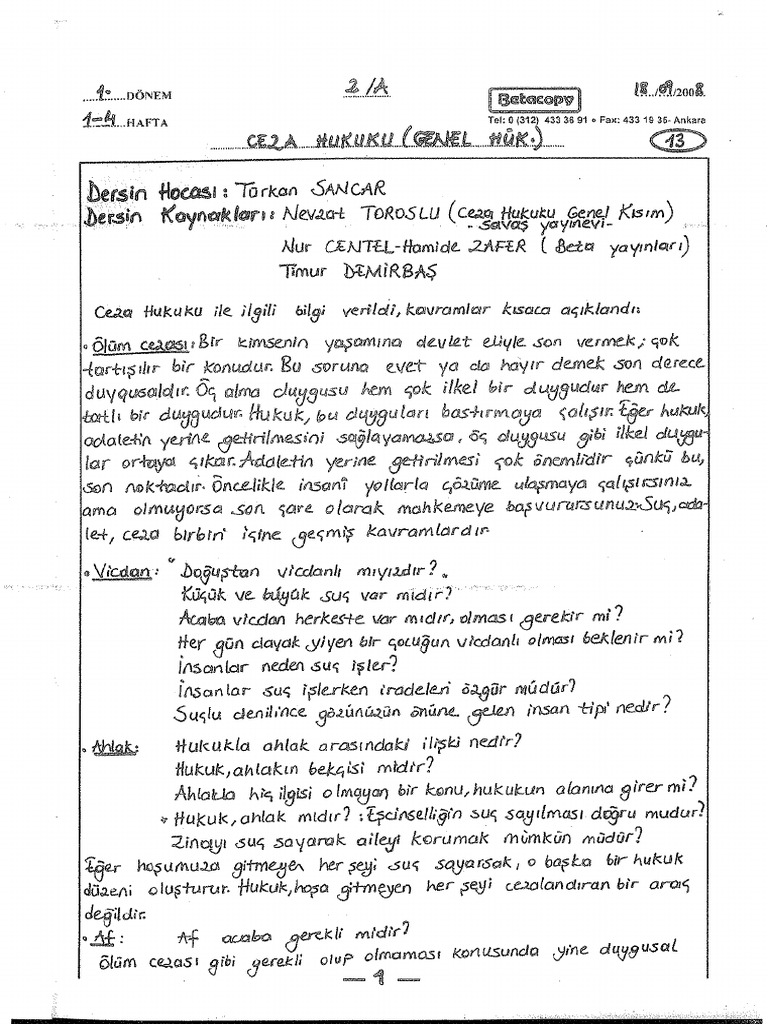 1. DÖNEM
2/A
Betacopy
18/09/2008
1-4 HAFTA
Tel: 0 (312) 433 36 91 • Fax: 433 19 36- Ankara
CEZA HUKUKU (GENEL HÜK.)
13
Dersin Hocası: Türkan SANCAR
Dersin Kaynakları: Nevzat TOROSLU (Ceza Hukuku Genel Kısım)
- Savaş yayınevi-
Nur CENTEL-Hamide ZAFER (Beta yayınları)
Timur DEMİRBAŞ
Ceza Hukuku ile ilgili bilgi verildi, kavramlar kısaca açıklandı:
• Ölüm cezası: Bir kimsenin yaşamına devlet eliyle son vermek; çok
tartışılır bir konudur. Bu soruna evet ya da hayır demek son derece
duygusaldır. Öç alma duygusu hem çok ilkel bir duygudur hem de
tatlı bir duygudur. Hukuk, bu duyguları bastırmaya çalışır. Eğer hukuk,
adaletin yerine getirilmesini sağlayamazsa, öç duygusu gibi ilkel duygu-
lar ortaya çıkar. Adaletin yerine getirilmesi çok önemlidir çünkü bu,
son noktadır. Öncelikle insanî yollarla çözüme ulaşmaya çalışırsınız
ama olmuyorsa son çare olarak mahkemeye başvurursunuz. Suç, ada-
let, ceza birbiri içine geçmiş kavramlardır.
• Vicdan: " Doğuştan vicdanlı mıyızdır? "
Küçük ve büyük suç var mıdır?
Acaba vicdan herkeste var mıdır, olması gerekir mi?
Her gün dayak yiyen bir çocuğun vicdanlı olması beklenir mi?
İnsanlar neden suç işler?
İnsanlar suç işlerken iradeleri özgür müdür?
Suçlu denilince gözünüzün önüne gelen insan tipi nedir?
• Ahlak: Hukukla ahlak arasındaki ilişki nedir?
Hukuk, ahlakın bekçisi midir?
Ahlakla hiç ilgisi olmayan bir konu, hukukun alanına girer mi?
* Hukuk, ahlak mıdır? : Eşcinselliğin suç sayılması doğru mudur?
Zinayı suç sayarak aileyi korumak mümkün müdür?
Eğer hoşumuza gitmeyen her şeyi suç sayarsak, o başka bir hukuk
düzeni oluşturur. Hukuk, hoşa gitmeyen her şeyi cezalandıran bir araç
değildir.
• Af: Af acaba gerekli midir?
Ölüm cezası gibi gerekli olup olmaması konusunda yine duygusal
— 1 —